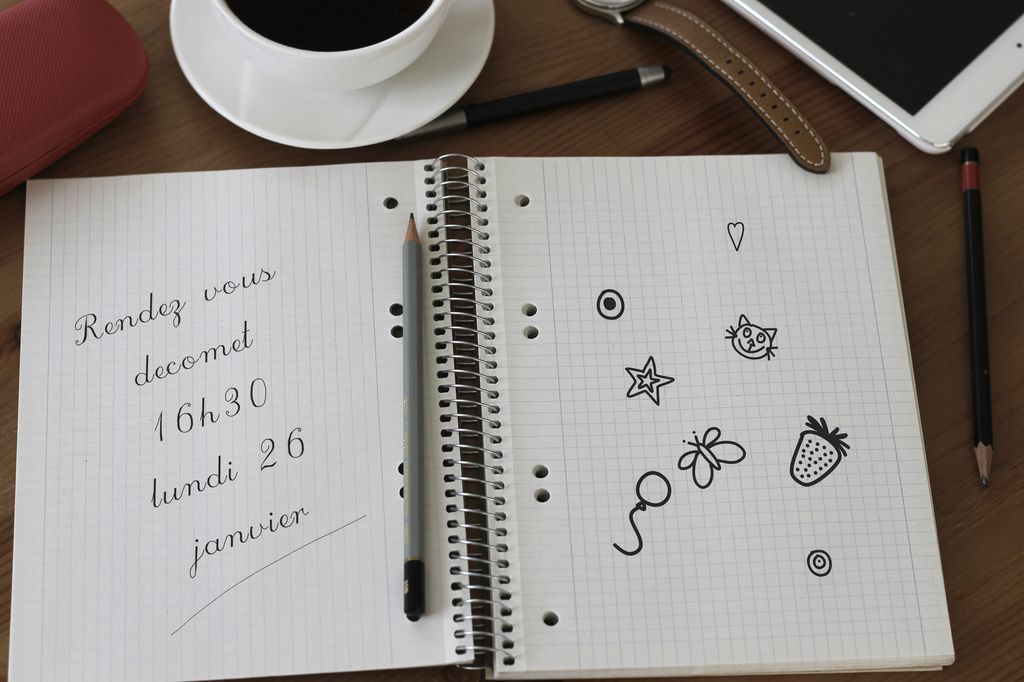 Rendez vous
decomet
16h30
lundi 26
janvier